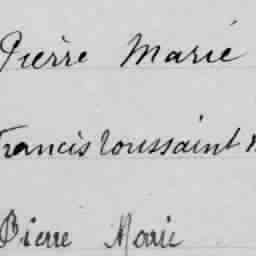 Pierre Marié
Francis Toussaint
Pierre Marie